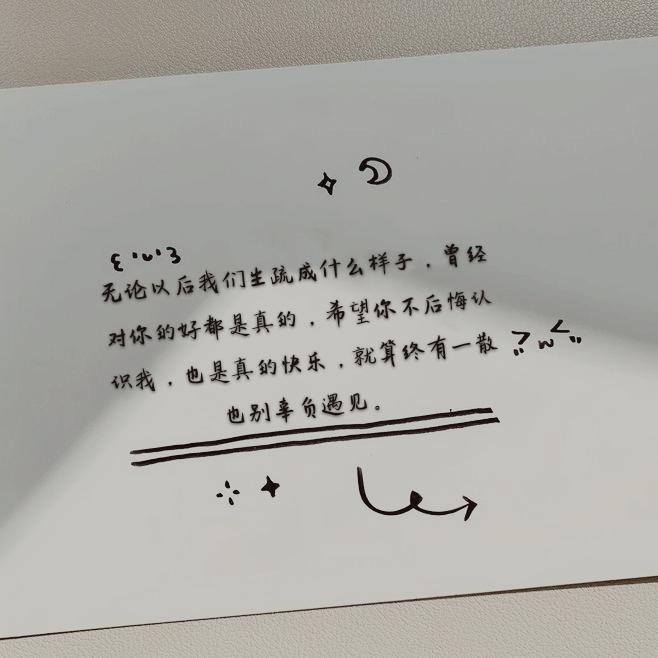 无论以后我们生疏成什么样子，曾经
对你的好都是真的，希望你不后悔认
识我，也是真的快乐，就算终有一散
也别辜负遇见。